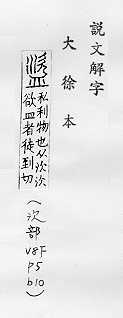 說文解字
大徐本
盜 私利物也从㳄㳄
欲皿者徒到切
(㳄部 V8F P5 b10)